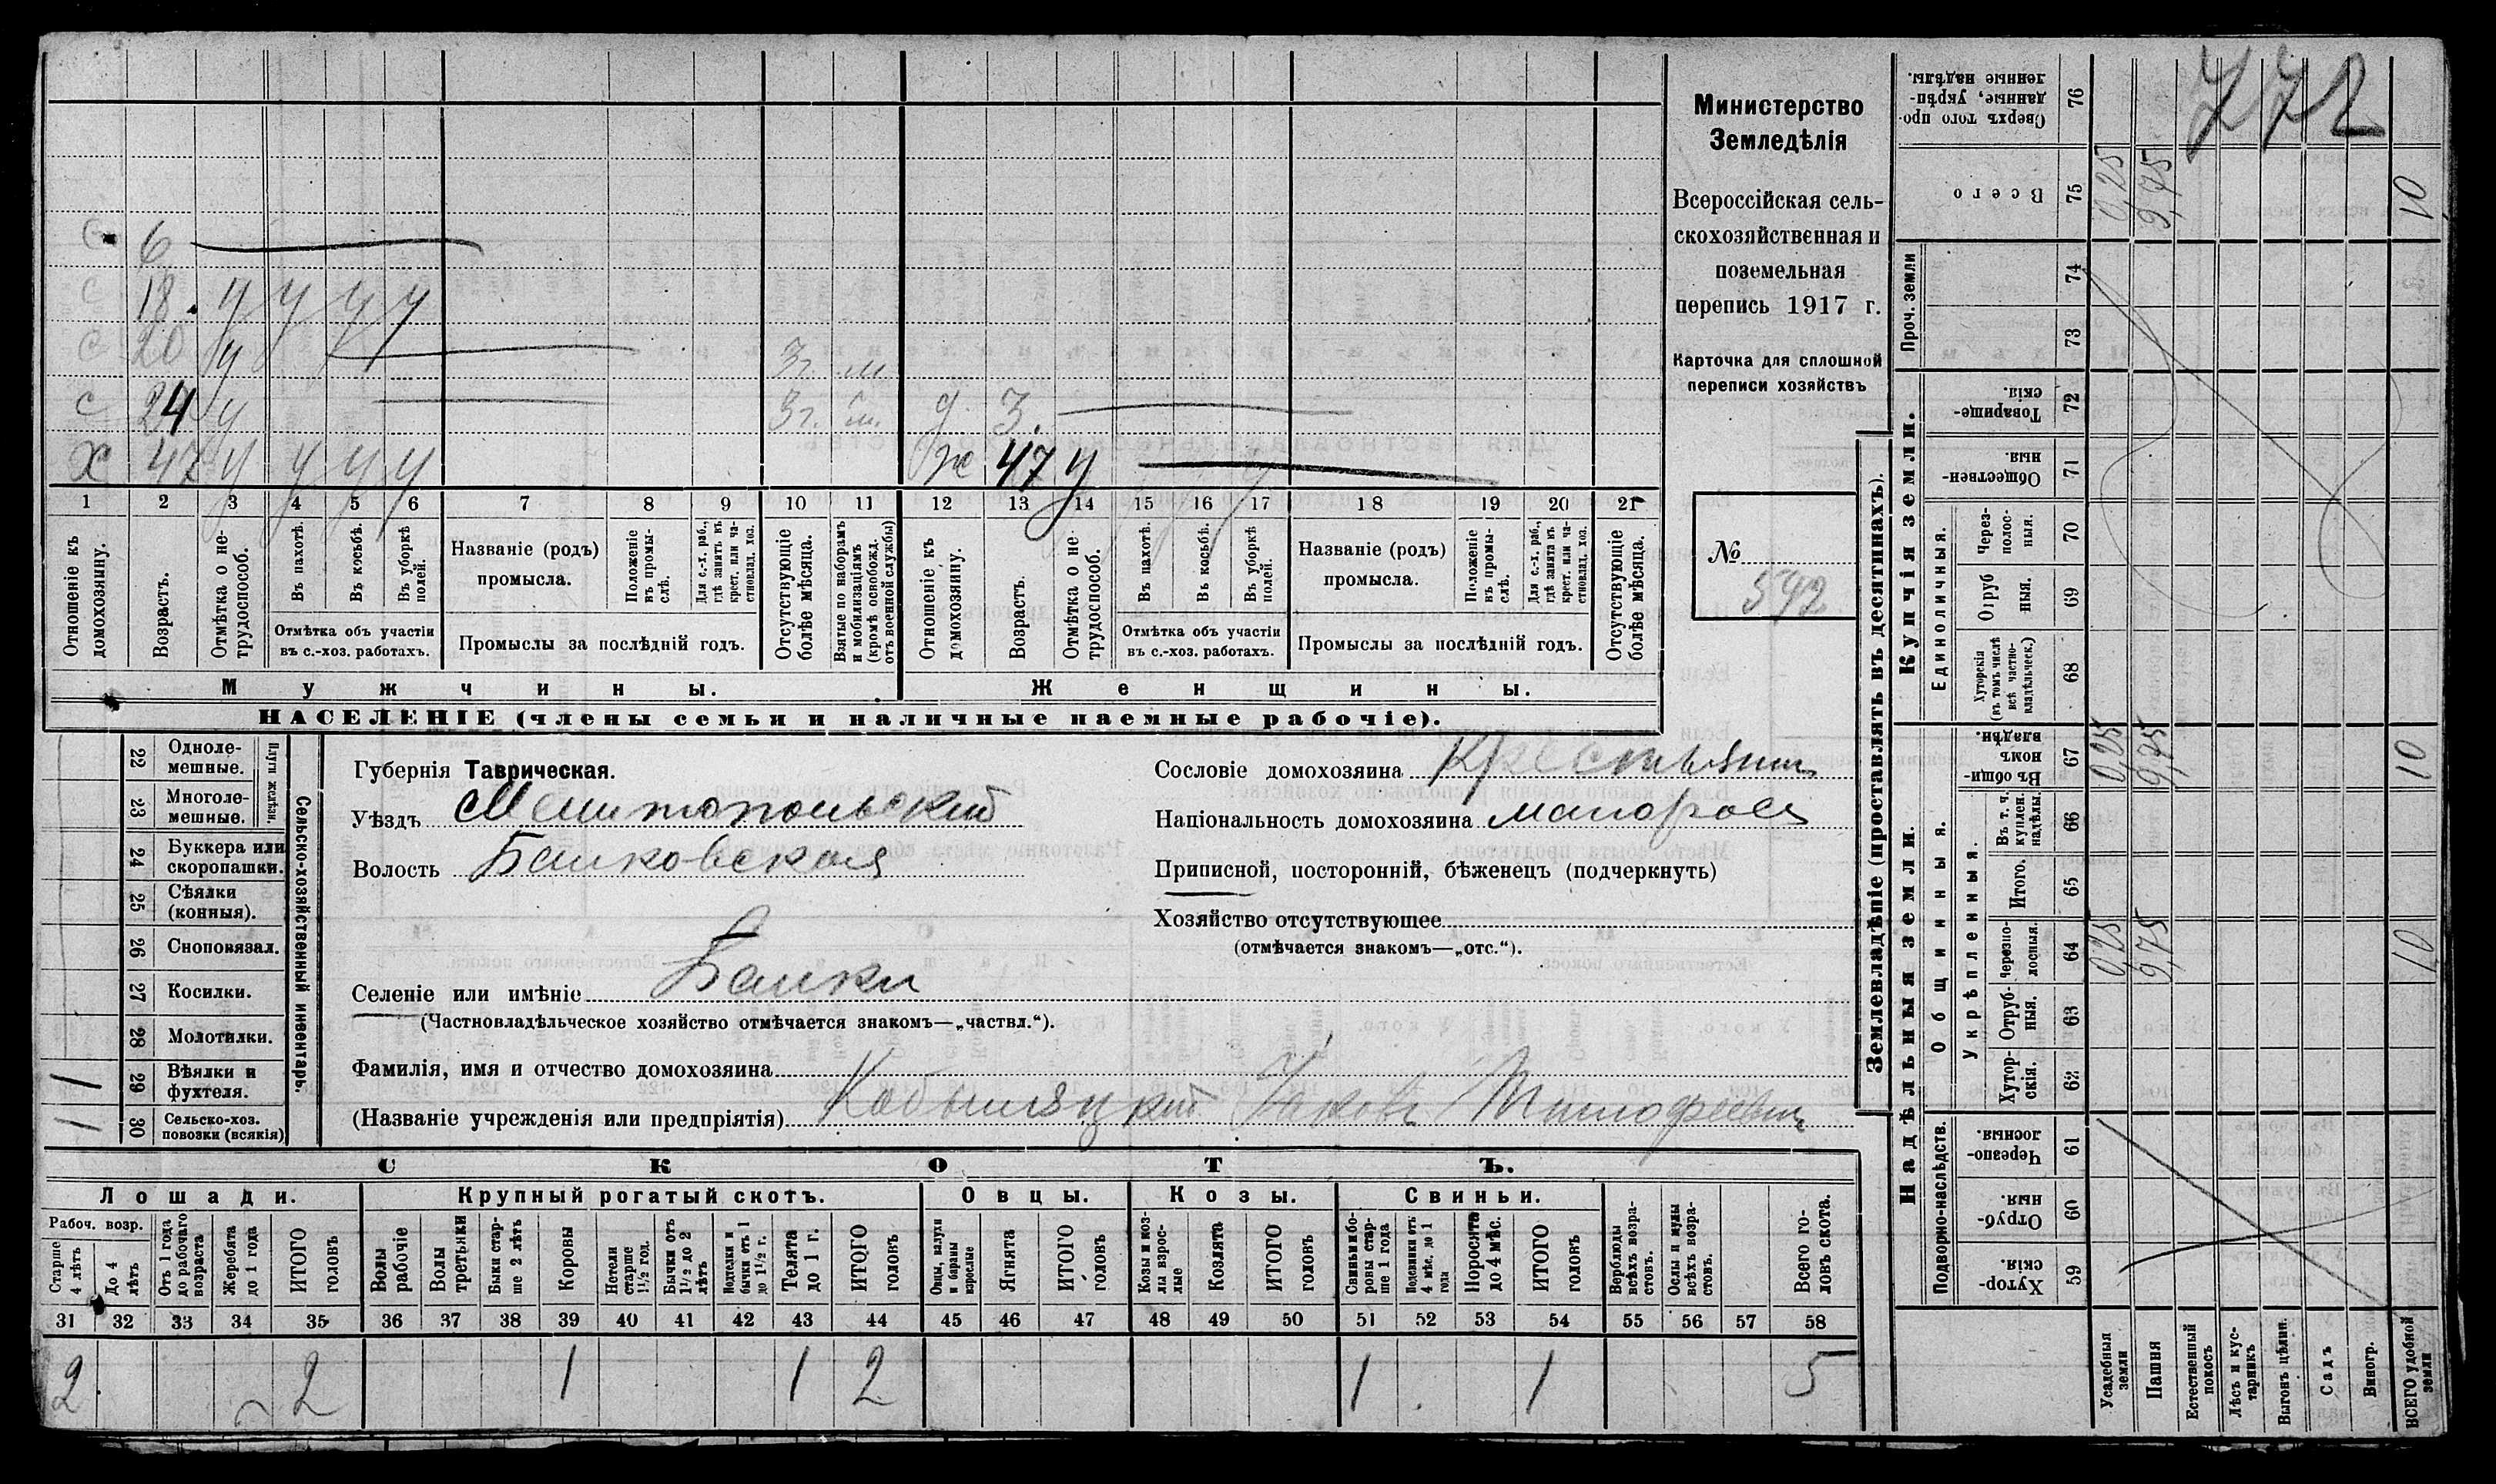 С 6
С 18. У У У У
С 20 У 3 г. м.
С 24 У 3 г. м. д 3.
Х 47 У У У У ж 47 У
1 2 3 4 5 6 7 8 9 10 11 12 13 14 15 16 17 18 19 20 21
Отношеніе къ домохозяину.
Возрастъ.
Отмѣтка о нетрудоспособ.
Въ пахотѣ.
Въ косьбѣ.
Въ уборкѣ полей.
Отмѣтка объ участіи
въ с.-хоз. работахъ.
Названіе (родъ)
промысла.
Положеніе въ промыслѣ.
Для с.-х. раб., гдѣ занятъ въ крест. или частновлад. хоз.
Промыслы за послѣдній годъ.
Отсутствующіе болѣе мѣсяца.
Взятые по наборамъ и мобилизаціямъ (кромѣ освобожд. отъ военной службы)
Отношеніе къ домохозяину.
Возрастъ.
Отмѣтка о нетрудоспособ.
Въ пахотѣ.
Въ косьбѣ.
Въ уборкѣ полей.
Отмѣтка объ участіи
въ с.-хоз. работахъ.
Названіе (родъ)
промысла.
Положеніе въ промыслѣ.
Для с.-х. раб., гдѣ занята въ крест. или частновлад. хоз.
Промыслы за послѣдній годъ.
Отсутствующіе болѣе мѣсяца.
Мужчины.
Женщины.
НАСЕЛЕНІЕ (члены семьи и наличные наемные рабочіе).
Министерство
Земледѣлія
Всероссійская сель-
скохозяйственная и
поземельная
перепись 1917 г.
Карточка для сплошной
переписи хозяйствъ
№
592
Сельско-хозяйственный инвентарь.
Плуги желѣзн.
22 Одноле-
мешные.
23 Многоле-
мешные.
24 Буккера или
скоропашки.
25 Сѣялки
(конныя).
26 Сноповязал.
27 Косилки.
28 Молотилки.
1 29 Вѣялки и
фухтеля.
1 30 Сельско-хоз.
повозки (всякія)
Губернія Таврическая.
Уѣздъ Мелитопольский
Волость Балковская
Сословіе домохозяина Крестьянин
Національность домохозяина малоросс
Приписной, посторонній, бѣженецъ (подчеркнуть)
Хозяйство отсутствующее
(отмѣчается знакомъ—„отс.“).
Селеніе или имѣніе с Балки
(Частновладѣльческое хозяйство отмѣчается знакомъ—„частвл.“).
Фамилія, имя и отчество домохозяина
(Названіе учрежденія или предпріятія) Кобыляцкий Яковъ Тимофеевич
СКОТЪ.
Лошади.
Крупный рогатый скотъ.
Овцы.
Козы.
Свиньи.
Рабоч. возр.
Старше 4 лѣтъ
До 4 лѣтъ
Отъ 1 года до рабочаго возраста
Жеребята до 1 года
ИТОГО головъ
Волы рабочіе
Волы третьяки
Быки старше 2 лѣтъ
Коровы
Нетели старше 1½ год.
Бычки отъ 1½ до 2 лѣтъ
Нетелки и бычки отъ 1 до 1½ г.
Телята до 1 г.
ИТОГО головъ
Овцы, валухи и бараны взрослые
Ягнята
ИТОГО головъ
Козы и козлы взрослые
Козлята
ИТОГО головъ
Свиньи и боровы старше 1 года
Подсвинки отъ 4 мѣс. до 1 года
Поросята до 4 мѣс.
ИТОГО головъ
Верблюды всѣхъ возрастовъ.
Ослы и мулы всѣхъ возрастовъ.
Всего головъ скота.
31 32 33 34 35 36 37 38 39 40 41 42 43 44 45 46 47 48 49 50 51 52 53 54 55 56 57 58
2 2 1 1 2 1 1 5
772
Землевладѣніе (проставлять въ десятинахъ).
Купчія земли.
Надѣльныя земли.
Сверхъ того проданные, укрѣпленные надѣлы. 76
Всего 75 0,25 9,75 10
Проч. земли
74
73
Товарищескія. 72
Общественныя. 71
Единоличныя.
Черезполосныя. 70
Отрубныя. 69
Хуторскія (въ томъ числѣ всѣ частновладѣльческ.) 68
Общинныя.
Въ общинномъ владѣн. 67 0,25 9,75 10
Укрѣпленныя.
Въ т. ч. куплен. надѣлы. 66
Итого. 65
Черезполосныя. 64 0,25 9,75 10
Отрубныя. 63
Хуторскія. 62
Подворно-наслѣдств.
Черезполосныя. 61
Отрубныя. 60
Хуторскія. 59
Усадебныя земли
Пашня
Естественный покосъ
Лѣсъ и кустарникъ
Выгонъ цѣлин.
Садъ
Виногр.
ВСЕГО удобной земли